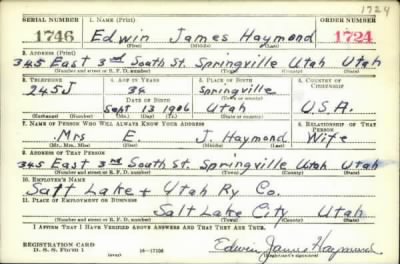 1724
SERIAL NUMBER 1. NAME (Print) ORDER NUMBER
1746 Edwin James Haymond 1724
(First) (Middle) (Last)
2. ADDRESS (Print)
345 East 3rd South St. Springville Utah Utah
(Number and street or R. F. D. number) (Town) (County) (State)
3. TELEPHONE 4. AGE IN YEARS 5. PLACE OF BIRTH 6. COUNTRY OF CITIZENSHIP
245J 34 Springville
DATE OF BIRTH (Town or county)
Sept 13 1906 Utah U.S.A.
(Exchange) (Number) (Mo.) (Day) (Yr.) (State or country)
7. NAME OF PERSON WHO WILL ALWAYS KNOW YOUR ADDRESS 8. RELATIONSHIP OF THAT PERSON
Mrs E. J. Haymond Wife
(Mr., Mrs., Miss) (First) (Middle) (Last)
9. ADDRESS OF THAT PERSON
345 East 3rd South St. Springville Utah Utah
(Number and street or R. F. D. number) (Town) (County) (State)
10. EMPLOYER'S NAME
Salt Lake + Utah Ry Co.
11. PLACE OF EMPLOYMENT OR BUSINESS
Salt Lake City Utah
(Number and street or R. F. D. number) (Town) (County) (State)
I AFFIRM THAT I HAVE VERIFIED ABOVE ANSWERS AND THAT THEY ARE TRUE.
REGISTRATION CARD
D. S. S. Form 1 (over) Edwin James Haymond